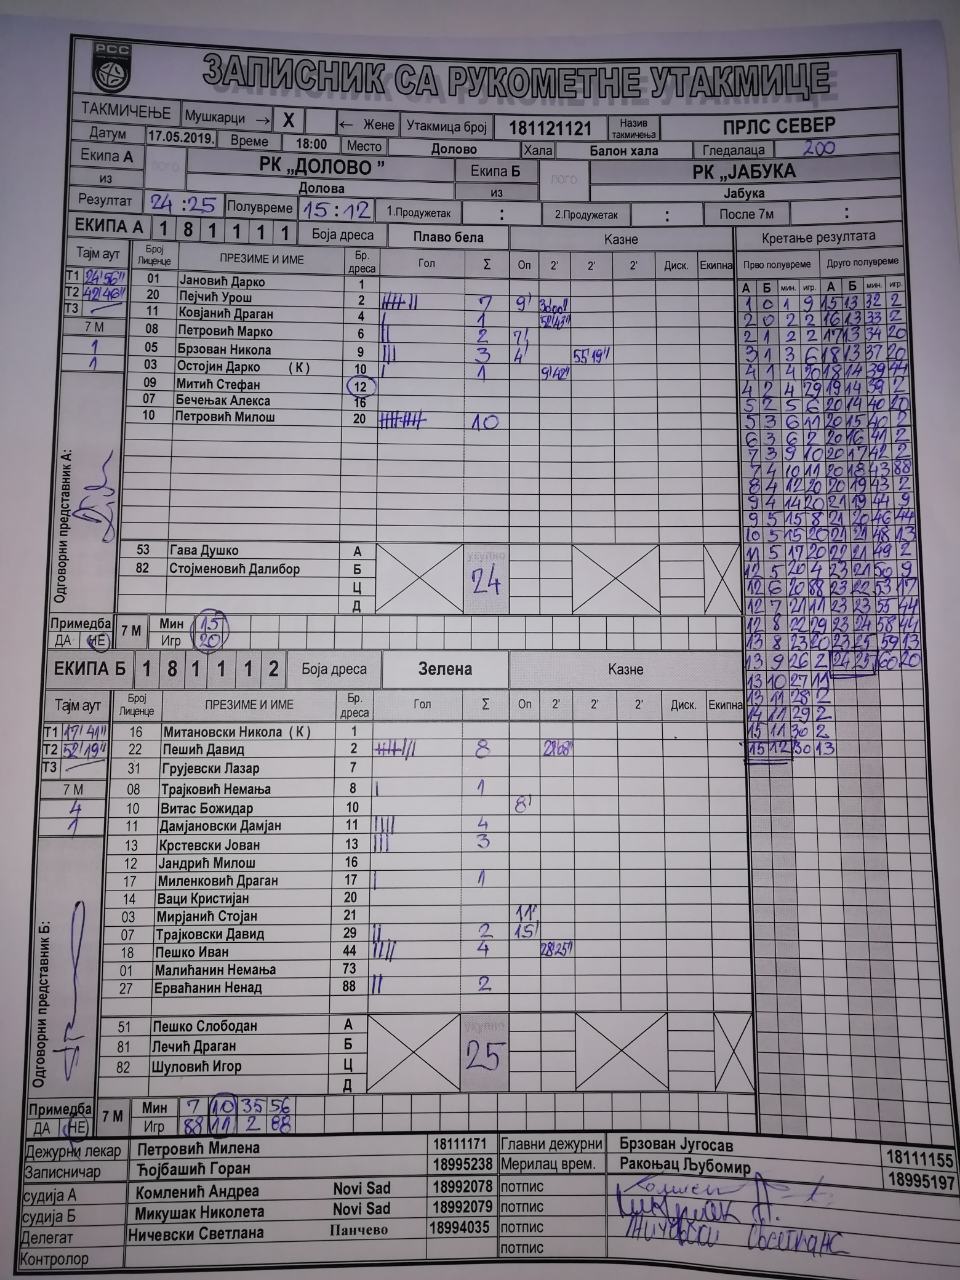 РСС
ЗАПИСНИК СА РУКОМЕТНЕ УТАКМИЦЕ
ТАКМИЧЕЊЕ Мушкарци → X ← Жене Утакмица број 181121121 Назив такмичења ПРЛС СЕВЕР
Датум 17.05.2019. Време 18:00 Место Долово Хала Балон хала Гледалаца 200
Екипа А ЛОГО РК „ДОЛОВО ” Екипа Б ЛОГО РК „ЈАБУКА
из Долова из Јабука
Резултат 24:25 Полувреме 15:12 1.Продужетак : 2.Продужетак : После 7м :
ЕКИПА А 1 8 1 1 1 1 Боја дреса Плаво бела Казне Кретање резултата
Тајм аут Број Лиценце ПРЕЗИМЕ И ИМЕ Бр. дреса Гол Σ Оп 2' 2' 2' Диск. Екипна Прво полувреме Друго полувреме
А Б мин. игр. А Б мин. игр.
T1 24'56" 01 Јановић Дарко 1
T2 42'46" 20 Пејчић Урош 2 7 9' 1 0 1 9 15 13 32 2
T3 11 Ковјанић Драган 4 1 2 0 2 2 16 13 33 2
7 М 08 Петровић Марко 6 2 7' 2 1 2 2 17 13 34 20
1 05 Брзован Никола 9 3 4' 55'19" 3 1 3 6 18 13 37 20
1 03 Остојин Дарко (К) 10 1 9'42" 4 1 4 20 18 14 39 44
09 Митић Стефан 12 4 2 4 29 19 14 39 2
07 Бечењак Алекса 16 5 2 5 6 20 14 40 20
10 Петровић Милош 20 10 5 3 6 11 20 15 40 2
6 3 6 2 20 16 41 2
7 3 9 10 20 17 42 2
7 4 10 11 20 18 43 88
8 4 12 20 20 19 43 2
9 4 14 20 21 19 44 9
9 5 15 8 21 20 46 44
10 5 15 20 21 21 48 13
Одговорни представник А:
53 Гава Душко А укупно 24 11 5 17 20 22 21 49 2
82 Стојменовић Далибор Б 12 5 20 4 23 21 50 9
Ц 12 6 20 88 23 22 53 17
Д 12 7 21 11 23 23 55 44
Примедба 7 М Мин 15 12 8 22 29 23 24 58 44
ДА НЕ Игр 20 13 8 23 20 23 25 59 13
ЕКИПА Б 1 8 1 1 1 2 Боја дреса Зелена Казне 13 9 26 2 24 25 60 20
13 10 27 11
Тајм аут Број Лиценце ПРЕЗИМЕ И ИМЕ Бр. дреса Гол Σ Оп 2' 2' 2' Диск. Екипна 13 11 28 2
14 11 29 2
T1 17'41" 16 Митановски Никола (К) 1 15 11 30 2
T2 52'19" 22 Пешић Давид 2 8 15 12 30 13
T3 31 Грујевски Лазар 7
7 М 08 Трајковић Немања 8 1
4 10 Витас Божидар 10 8'
1 11 Дамјановски Дамјан 11 4
13 Крстевски Јован 13 3
12 Јандрић Милош 16
17 Миленковић Драган 17 1
14 Ваци Кристијан 20
03 Мирјанић Стојан 21 11'
07 Трајковски Давид 29 2 15'
18 Пешко Иван 44 4 28'25"
01 Малићанин Немања 73
27 Ерваћанин Ненад 88 2
Одговорни представник Б:
51 Пешко Слободан А укупно 25
81 Лечић Драган Б
82 Шуловић Игор Ц
Д
Примедба 7 М Мин 7 10 35 56
ДА НЕ Игр 88 11 2 88
Дежурни лекар Петровић Милена 18111171 Главни дежурни Брзован Југосав 18111155
Записничар Ћојбашић Горан 18995238 Мерилац врем. Ракоњац Љубомир 18995197
судија А Комленић Андреа Novi Sad 18992078 потпис
судија Б Микушак Николета Novi Sad 18992079 потпис
Делегат Ничевски Светлана Панчево 18994035 потпис
Контролор потпис